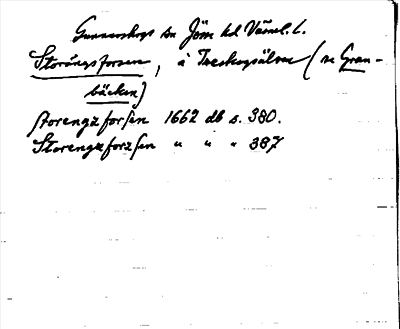 Gunnarskogs sn Jösse hd Värml. l.
Storängsforsen, i Treskogsälven (se Gran-
bäcken)
Storengzforsen 1662 db s. 380.
Storengzforzsen " " " 387